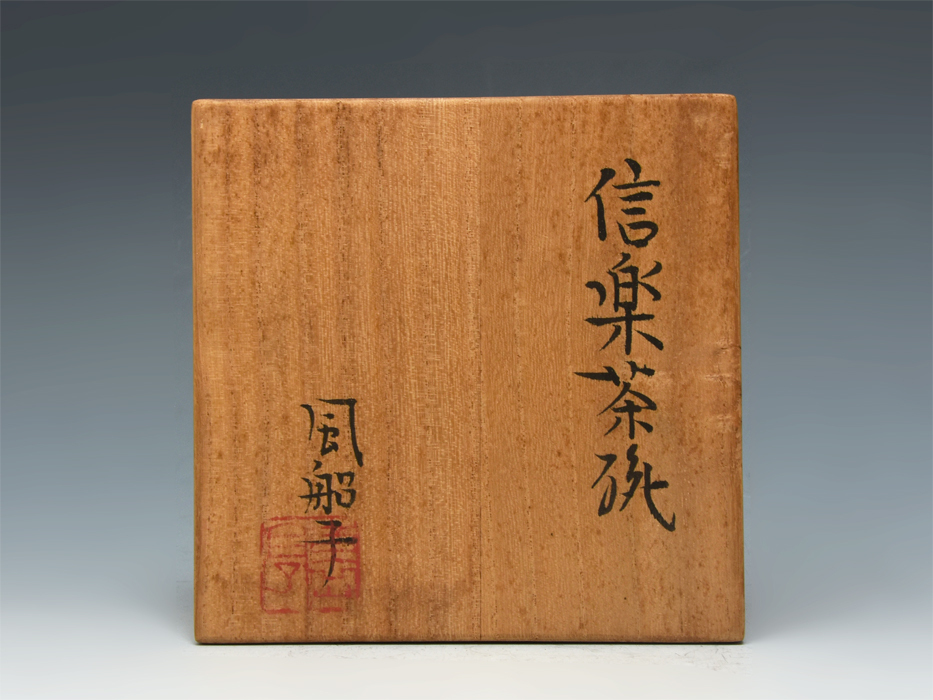 信楽茶碗
風船子